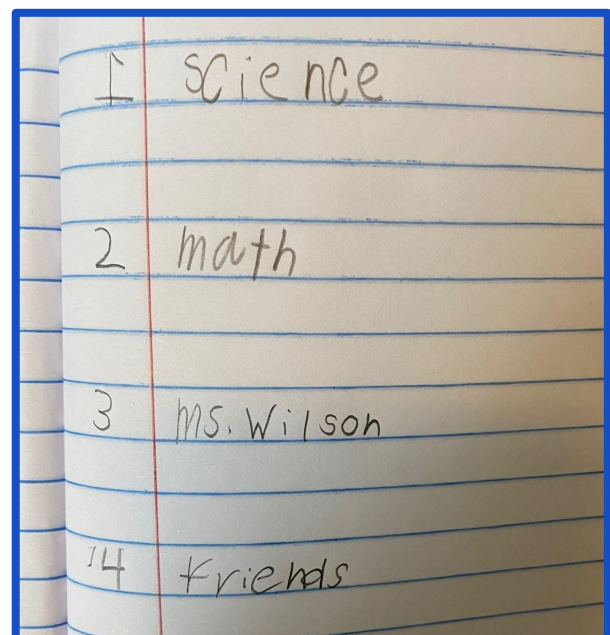 1 science
2 math
3 Ms. Wilson
4 friends